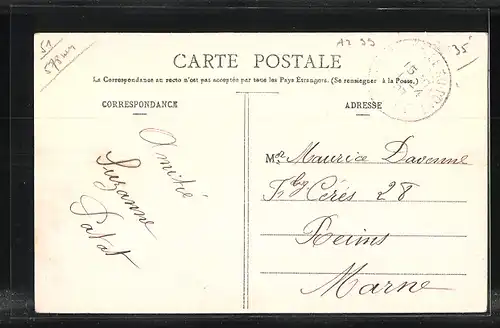 51
A2 99
35
CARTE POSTALE
La Correspondance au recto n'est pas acceptée par tous les Pays Étrangers. (Se renseigner à la Poste.)
CORRESPONDANCE
ADRESSE
Amitié
Suzanne
Patat
Mr Maurice Davenne
Fbg Cérés 28
Reims
Marne